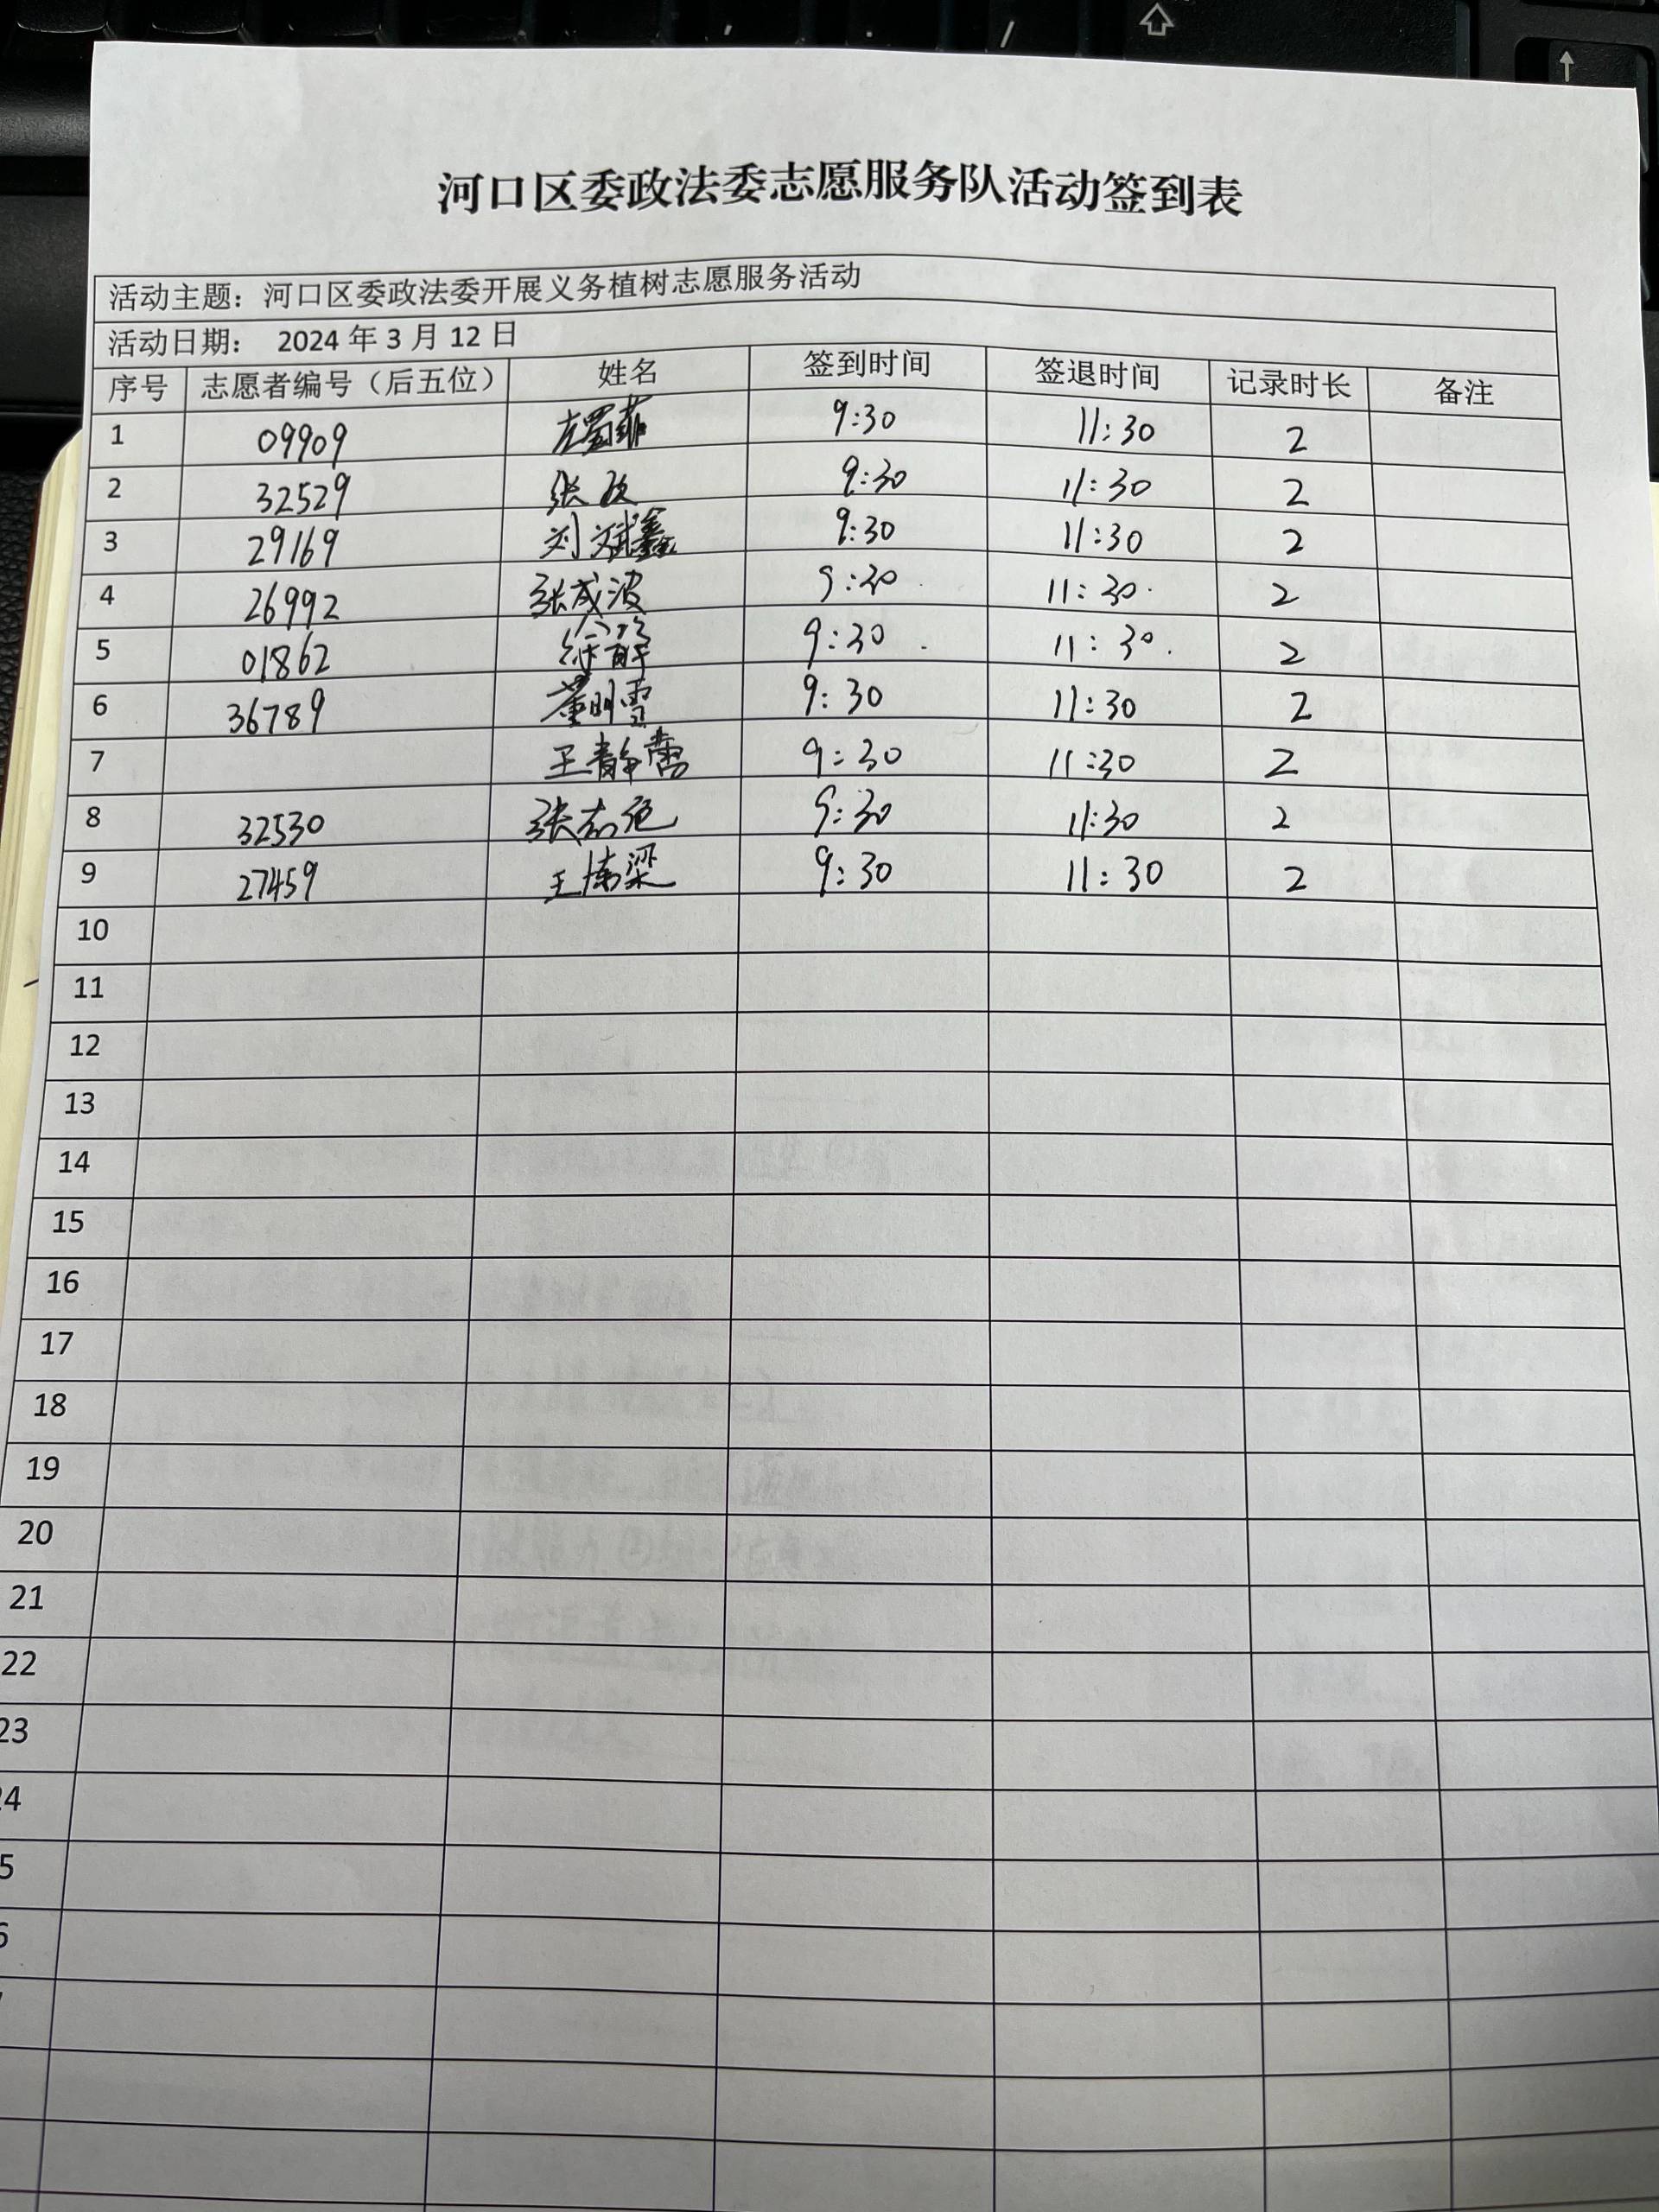 河口区委政法委志愿服务队活动签到表
活动主题：河口区委政法委开展义务植树志愿服务活动
活动日期： 2024 年 3 月 12 日
序号 志愿者编号（后五位） 姓名 签到时间 签退时间 记录时长 备注
1 09909 9:30 11:30 2
2 32529 张 9:30 11:30 2
3 29169 刘斌鑫 9:30 11:30 2
4 26992 张成波 9:30 11:30 2
5 01862 徐 9:30 11:30 2
6 36789 董明雪 9:30 11:30 2
7 王静蕾 9:30 11:30 2
8 32530 张志 9:30 11:30 2
9 27459 王栋梁 9:30 11:30 2
10
11
12
13
14
15
16
17
18
19
20
21
22
23
24
5
6